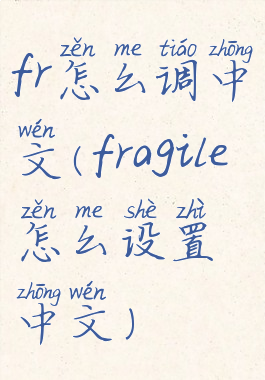 zěn me tiáo zhōng
fr怎么调中
wén
文(fragile
zěn me shè zhì
怎么设置
zhōng wén
中文)